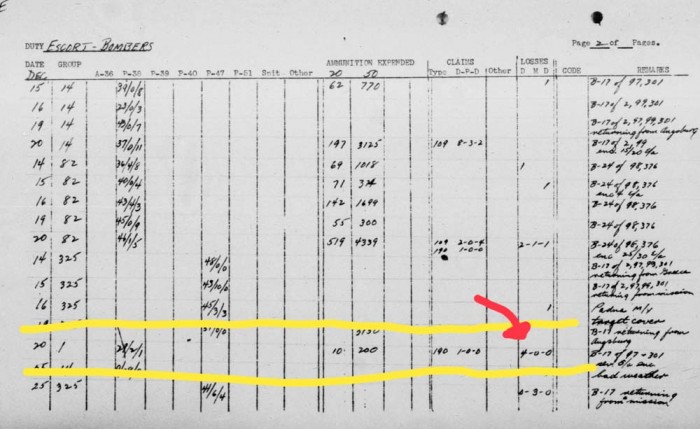 DUTY ESCORT-BOMBERS Page 2 of Pages.
DATE GROUP AMMUNITION EXPENDED CLAIMS LOSSES
DEC A-36 P-38 P-39 P-40 P-47 P-51 Spit. Other 20 50 Type D-P-D Other D M D CODE REMARKS
15 14 39/0/8 62 770 1 B-17 of 97,301
16 14 23/0/3 B-17 of 2,99,301
19 14 40/0/7 B-17 of 2,97,99,301
returning from Augsburg
20 14 37/0/11 197 3125 109 8-3-2 B-17 of 2,99
enc 15/20 e/a
14 82 36/4/8 69 1018 1 B-24 of 98,376
15 82 40/6/4 71 1 B-24 of 98,376
enc 4 e/a
16 82 43/4/3 142 1699 B-24 of 98,376
19 82 45/0/9 55 300 B-24 of 98,376
20 82 44/1/5 519 4339 109 2-0-4 2-1-1 B-24 of 98,376
190 1-0-0 enc 25/30 e/a
14 325 48/0/0 B-17 of 2,97,99,301
returning from
15 325 43/10/0 B-17 of 2,97,99,301
returning from mission
16 325 45/3/3 1 Padua M/Y
target cover
B-17 returning from
Augsburg
20 1 28/2/1 10 200 190 1-0-0 4-0-0 B-17 of 97-301
bad weather
25 325 41/6/4 0-3-0 B-17 returning
from mission